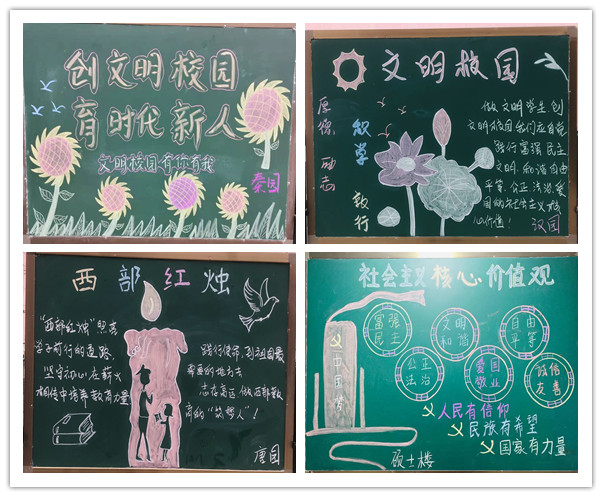 创文明校园
育时代新人
文明校园有你有我
秦园
文明校园
厚德 励志
敦学 敦行
做文明学生创
文明校园我们应自觉
践行富强 民主
文明 和谐 自由
平等、公正 法治 爱
国的社会主义核
心价值！
汉园
西部红烛
“西部红烛”照亮
学子前行的道路
坚守初心 在薪火
相传中培养教育力量
践行使命，到祖国最
需要的地方去
志在高远 做西部教
育的“筑梦人”！
唐园
社会主义核心价值观
中国梦
富强 民主
文明 和谐
自由 平等
公正 法治
爱国 敬业
诚信 友善
人民有信仰
民族有希望
国家有力量
硕士楼